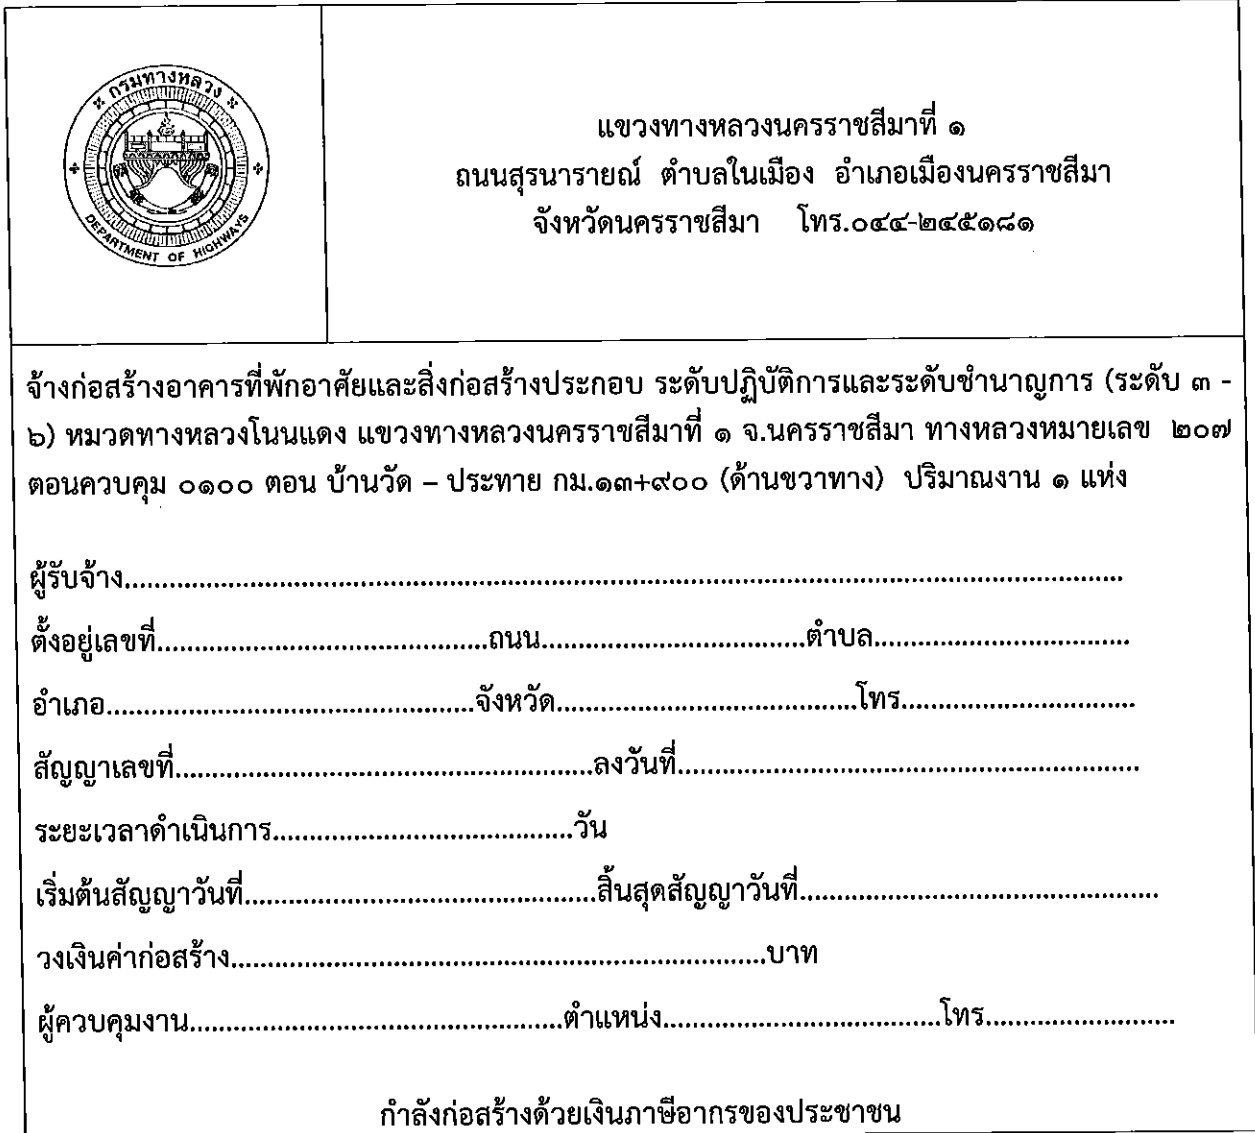 กรมทางหลวง
DEPARTMENT OF HIGHWAYS
แขวงทางหลวงนครราชสีมาที่ ๑
ถนนสุรนารายณ์ ตำบลในเมือง อำเภอเมืองนครราชสีมา
จังหวัดนครราชสีมา โทร.๐๔๔-๒๔๕๑๘๑
จ้างก่อสร้างอาคารที่พักอาศัยและสิ่งก่อสร้างประกอบ ระดับปฏิบัติการและระดับชำนาญการ (ระดับ ๓ -
๖) หมวดทางหลวงโนนแดง แขวงทางหลวงนครราชสีมาที่ ๑ จ.นครราชสีมา ทางหลวงหมายเลข ๒๐๗
ตอนควบคุม ๐๑๐๐ ตอน บ้านวัด – ประทาย กม.๑๓+๙๐๐ (ด้านขวาทาง) ปริมาณงาน ๑ แห่ง
ผู้รับจ้าง....................................................................................................
ตั้งอยู่เลขที่............................................ถนน...................................ตำบล..................................
อำเภอ.................................................จังหวัด........................................โทร...............................
สัญญาเลขที่........................................................ลงวันที่.............................................................
ระยะเวลาดำเนินการ........................................วัน
เริ่มต้นสัญญาวันที่...............................................สิ้นสุดสัญญาวันที่................................................
วงเงินค่าก่อสร้าง.......................................................................บาท
ผู้ควบคุมงาน..................................................ตำแหน่ง.....................................โทร.........................
กำลังก่อสร้างด้วยเงินภาษีอากรของประชาชน